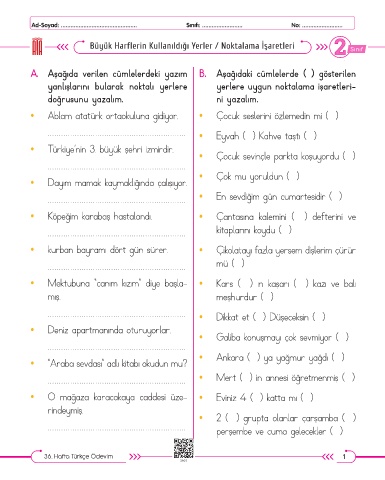 Ad-Soyad: ............................................... Sınıf: ......................... No: .........................
Büyük Harflerin Kullanıldığı Yerler / Noktalama İşaretleri
2. Sınıf
A. Aşağıda verilen cümlelerdeki yazım
yanlışlarını bularak noktalı yerlere
doğrusunu yazalım.
• Ablam atatürk ortaokuluna gidiyor.
• Türkiye'nin 3. büyük şehri izmirdir.
• Dayım mamak kaymaklığında çalışıyor.
• Köpeğim karabaş hastalandı.
• kurban bayramı dört gün sürer.
• Mektubuna "canım kızım" diye başla-
mış.
• Deniz apartmanında oturuyorlar.
• "Araba sevdası" adlı kitabı okudun mu?
• O mağaza karacakaya caddesi üze-
rindeymiş.
B. Aşağıdaki cümlelerde ( ) gösterilen
yerlere uygun noktalama işaretleri-
ni yazalım.
• Çocuk seslerini özlemedin mi ( )
• Eyvah ( ) Kahve taştı ( )
• Çocuk sevinçle parkta koşuyordu ( )
• Çok mu yoruldun ( )
• En sevdiğim gün cumartesidir ( )
• Çantasına kalemini ( ) defterini ve
kitaplarını koydu ( )
• Çikolatayı fazla yersem dişlerim çürür
mü ( )
• Kars ( ) ın kaşarı ( ) kazı ve balı
meşhurdur ( )
• Dikkat et ( ) Düşeceksin ( )
• Galiba konuşmayı çok sevmiyor ( )
• Ankara ( ) ya yağmur yağdı ( )
• Mert ( ) in annesi öğretmenmiş ( )
• Eviniz 4 ( ) katta mı ( )
• 2 ( ) grupta olanlar çarşamba ( )
perşembe ve cuma gelecekler ( )
36. Hafta Türkçe Ödevim
1